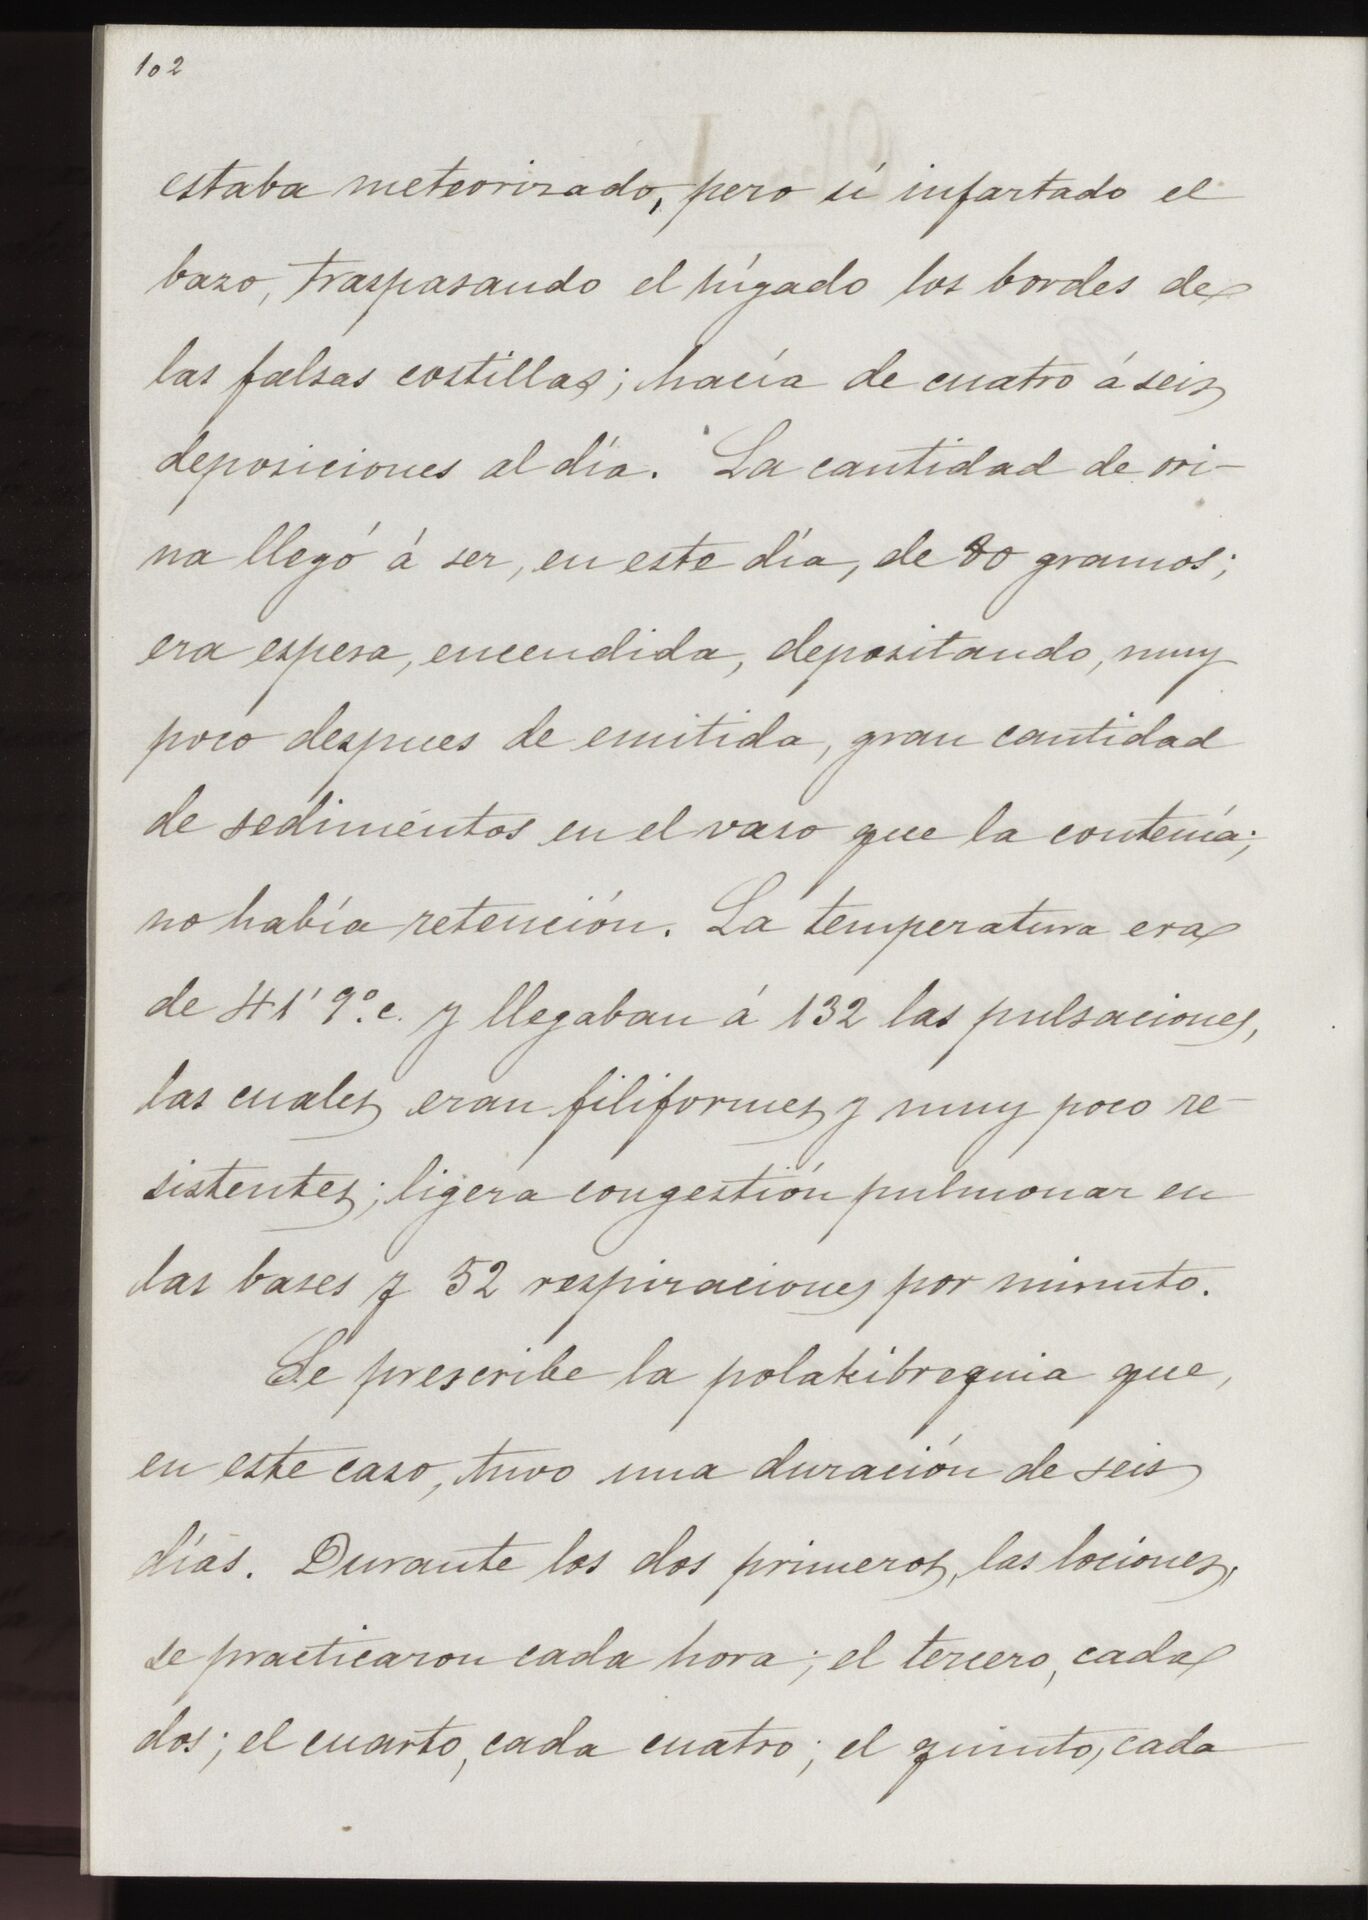 102
estaba meteorizado, pero sí infartado el
bazo, traspasando el hígado los bordes de
las falsas costillas; hacía de cuatro á seis
deposiciones al día. La cantidad de ori-
na llegó á ser, en este día, de 80 gramos;
era espesa, encendida, depositando, muy
poco despues de emitida, gran cantidad
de sedimentos en el vaso que la contenía;
no había retención. La temperatura era
de 41'9º c. y llegaban á 132 las pulsaciones,
las cuales eran filiformes y muy poco re-
sistentes; ligera congestión pulmonar en
las bases y 52 respiraciones por minuto.
Se prescribe la polakibrequia que,
en este caso, tuvo una duración de seis
días. Durante los dos primeros, las lociones,
se practicaron cada hora; el tercero, cada
dos; el cuarto, cada cuatro; el quinto, cada